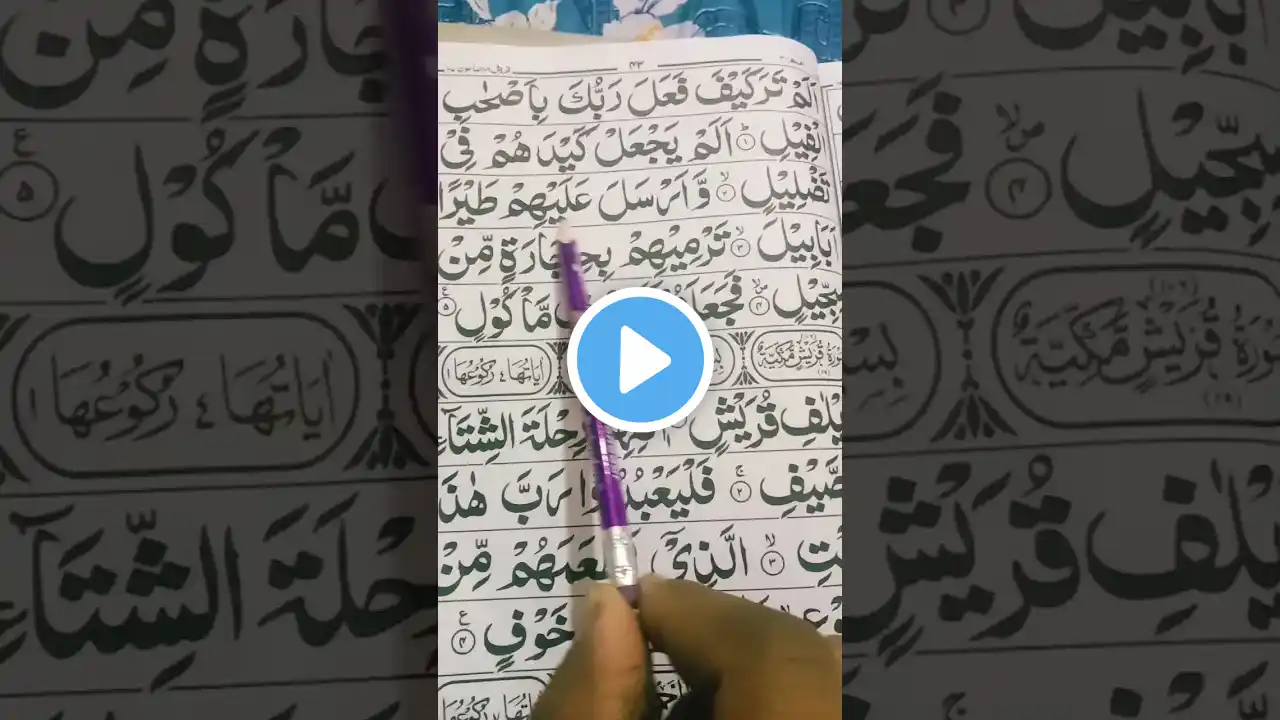 ٤٣
اَلَمْ تَرَكَيْفَ فَعَلَ رَبُّكَ بِاَصْحٰبِ
الْفِيْلِ ١ اَلَمْ يَجْعَلْ كَيْدَهُمْ فِيْ
تَضْلِيْلٍ ٢ وَّاَرْسَلَ عَلَيْهِمْ طَيْرًا
اَبَابِيْلَ ٣ تَرْمِيْهِمْ بِحِجَارَةٍ مِّنْ
سِجِّيْلٍ ٤ مَّاْكُوْلٍ ٥
سُوْرَةُ قُرَيْشٍ مَّكِّيَّةٌ اٰيَاتُهَا ٤ رُكُوْعُهَا ١
لِاِيْلٰفِ قُرَيْشٍ رِحْلَةَ الشِّتَآءِ
وَالصَّيْفِ ٢ فَلْيَعْبُدُوْا رَبَّ هٰذَا
الْبَيْتِ ٣ الَّذِيْٓ اَطْعَمَهُمْ مِّنْ
خَوْفٍ ٤
رُكُوْعُهَا